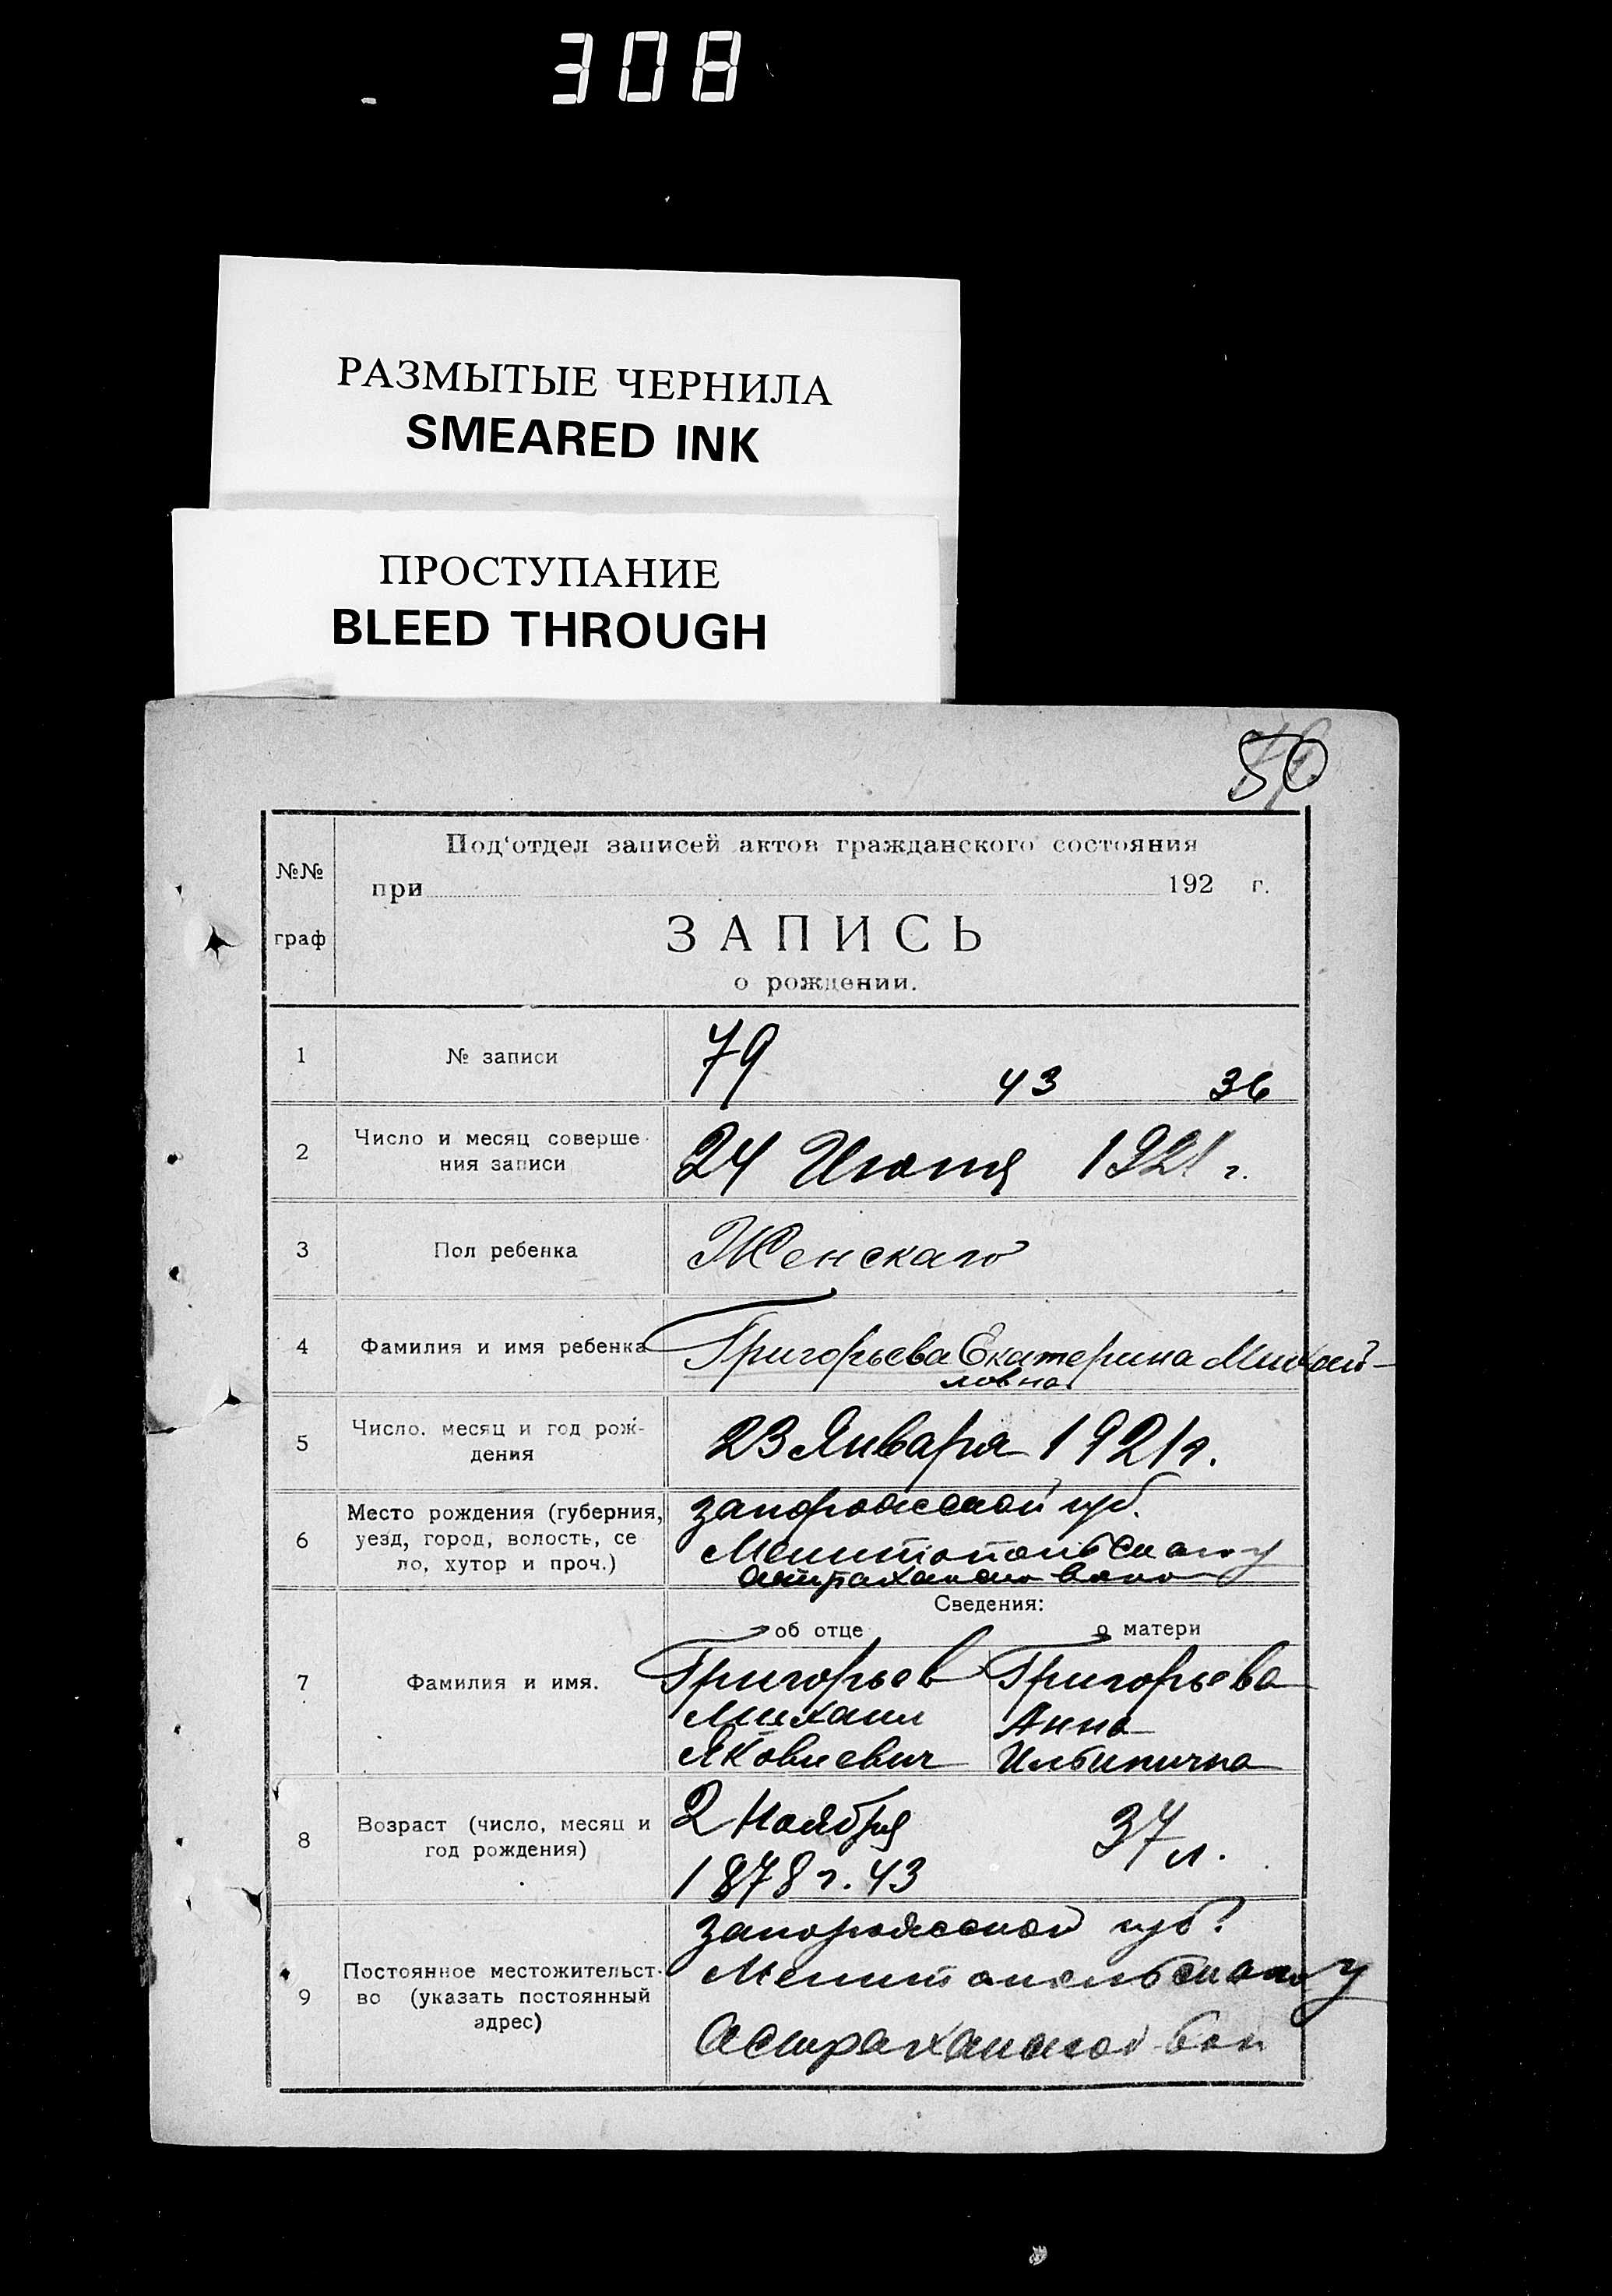 308
РАЗМЫТЫЕ ЧЕРНИЛА
SMEARED INK
ПРОСТУПАНИЕ
BLEED THROUGH
50
№№
граф
Под'отдел записей актов гражданского состояния
при 192 г.
ЗАПИСЬ
о рождении.
1 № записи 79 43 36
2 Число и месяц соверше-
ния записи
24 Июня 1921 г.
3 Пол ребенка Женскаго
4 Фамилия и имя ребенка Григорьева Екатерина Михай-
ловна
5 Число. месяц и год рож-
дения
23 Января 1921 г.
6 Место рождения (губерния,
уезд, город, волость, се
ло, хутор и проч.)
Запорожской губ.
Мелитопольскаго у
Астраханской
Сведения:
об отце о матери
7 Фамилия и имя.
Григорьев
Михаил
Яковлевич
Григорьева
Анна
8 Возраст (число, месяц и
год рождения)
2 Ноября
1878 г. 43
37 л.
9 Постоянное местожительст-
во (указать постоянный
адрес)
Запорожской губ.
Мелитопольскаго у
Астраханской вол